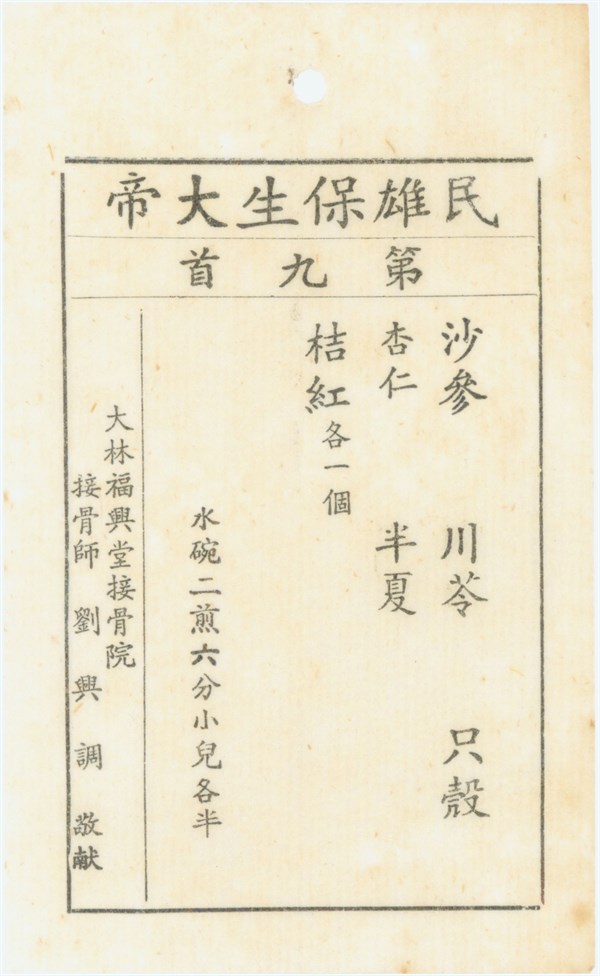 民雄保生大帝
第九首
沙參 川苓 只殼
杏仁 半夏
桔紅各一個
水碗二煎六分小兒各半
大林福興堂接骨院
接骨師 劉興調 敬献